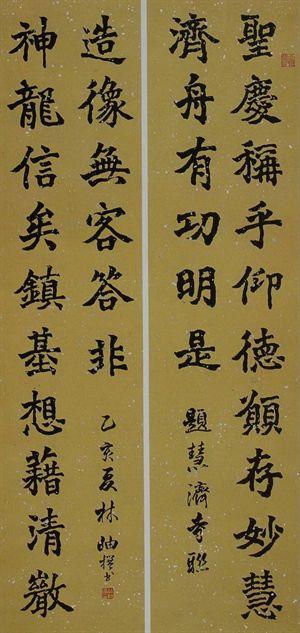 聖慶稱乎仰德願存妙慧
濟舟有功明是
題慧濟寺聯
神龍信矣鎮基想藉清徽
造像無客答非
乙亥夏林岫撰书